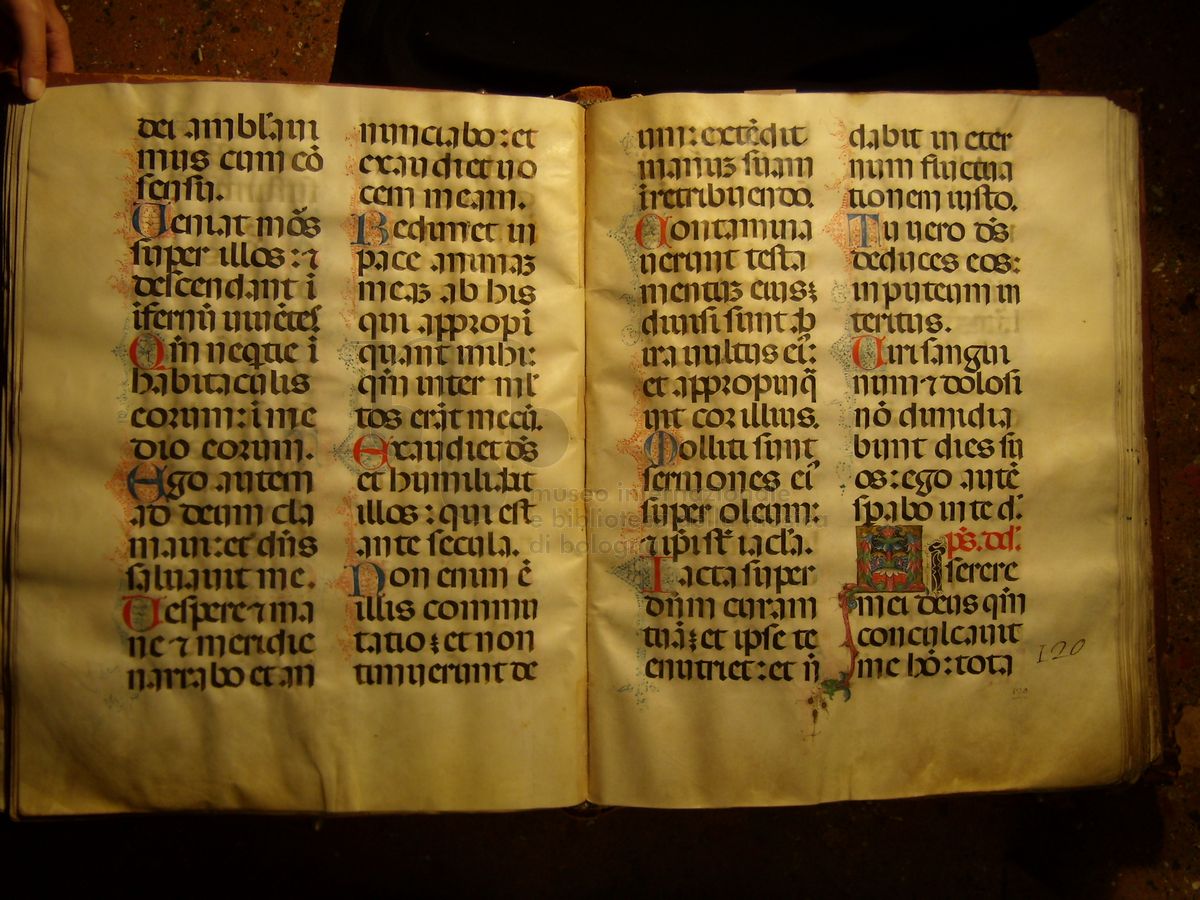 dei ambᷓlaui
mus cum cō
senſu.
Ueniat mōs
super illos : ⁊
deſcendant ī
īfernū uiuētes
Qm̄ neq̄tie ī
habitaculis
eorum : ī me
dio eorum.
Ego autem
ad deum cla
maui : et dn̄s
saluauit me.
Ueſpere ⁊ ma
ne ⁊ meridie
narrabo et an
nunciabo : et
exaudiet uo
cem meam.
Redimet in
pace animaꝫ
meaꝫ ab his
qui appropi
quant mihi :
qm̄ inter ml̄
tos erāt mecū.
Exaudiet ds̄
et humiliabit
illos : qui eſt
ante ſecula.
Non enim ē
illis commu
tatio : et non
timuerunt de
um : extēdit
manuꝫ ſuam
ī retribuendo.
Contamina
uerunt teſta
mentuꝫ eius :
diuiſi ſunt ab
ira uultus ei᾽ :
et appropinq̄
uit cor illius.
Molliti ſunt
ſermones ei᾽
ſuper oleum :
⁊ ipī ſt̄ iacl̄a.
Iacta ſuper
dn̄m curam
tuā : et ipſe te
enutriet : et n̄
dabit in eter
num fluctua
tionem iuſto.
Tu uero ds̄
deduces eos :
in puteum in
teritus.
Uiri ſangui
num ⁊ doloſi
nō dimidia
bunt dies ſu
os : ego autē
ſpabo in te d.
ps̄. dd̄.
Miserere
mei deus qm̄
conculcauit
me hō : tota
120
120
museo internazionale
e biblioteca della musica
di bologna